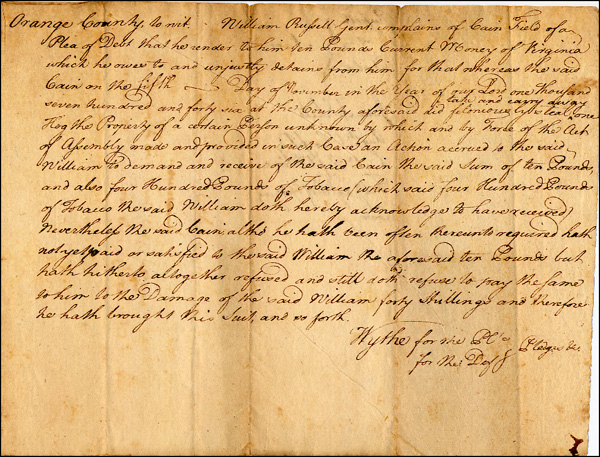 Orange County, to wit. William Russell Gent. complains of Cain Field of a
Plea of Debt that he render to him ten Pounds Current Money of Virginia
which he owes to and unjustly detains from him for that whereas the said
Cain on the fifth Day of November in the Year of our Lord one Thousand
seven hundred and forty six at the County aforesaid did feloniously steal take and carry away one
Hog the Property of a certain Person unknown by which and by Force of the Act
of Assembly made and provided in such Case an Action accrued to the said
William to demand and receive of the said Cain the said Sum of ten Pounds,
and also four Hundred Pounds of Tobacco (which said four Hundred Pounds
of Tobacco the said William doth hereby acknowledge to have received)
Nevertheless the said Cain altho he hath been often thereunto required hath
not yet paid or satisfied to the said William the aforesaid ten Pounds but
hath hitherto altogether refused and still doth refuse to pay the same
to him to the Damage of the said William forty Shillings and therefore
he hath brought this Suit, and so forth.
Wythe for the Pl
for the Def Pledges &c